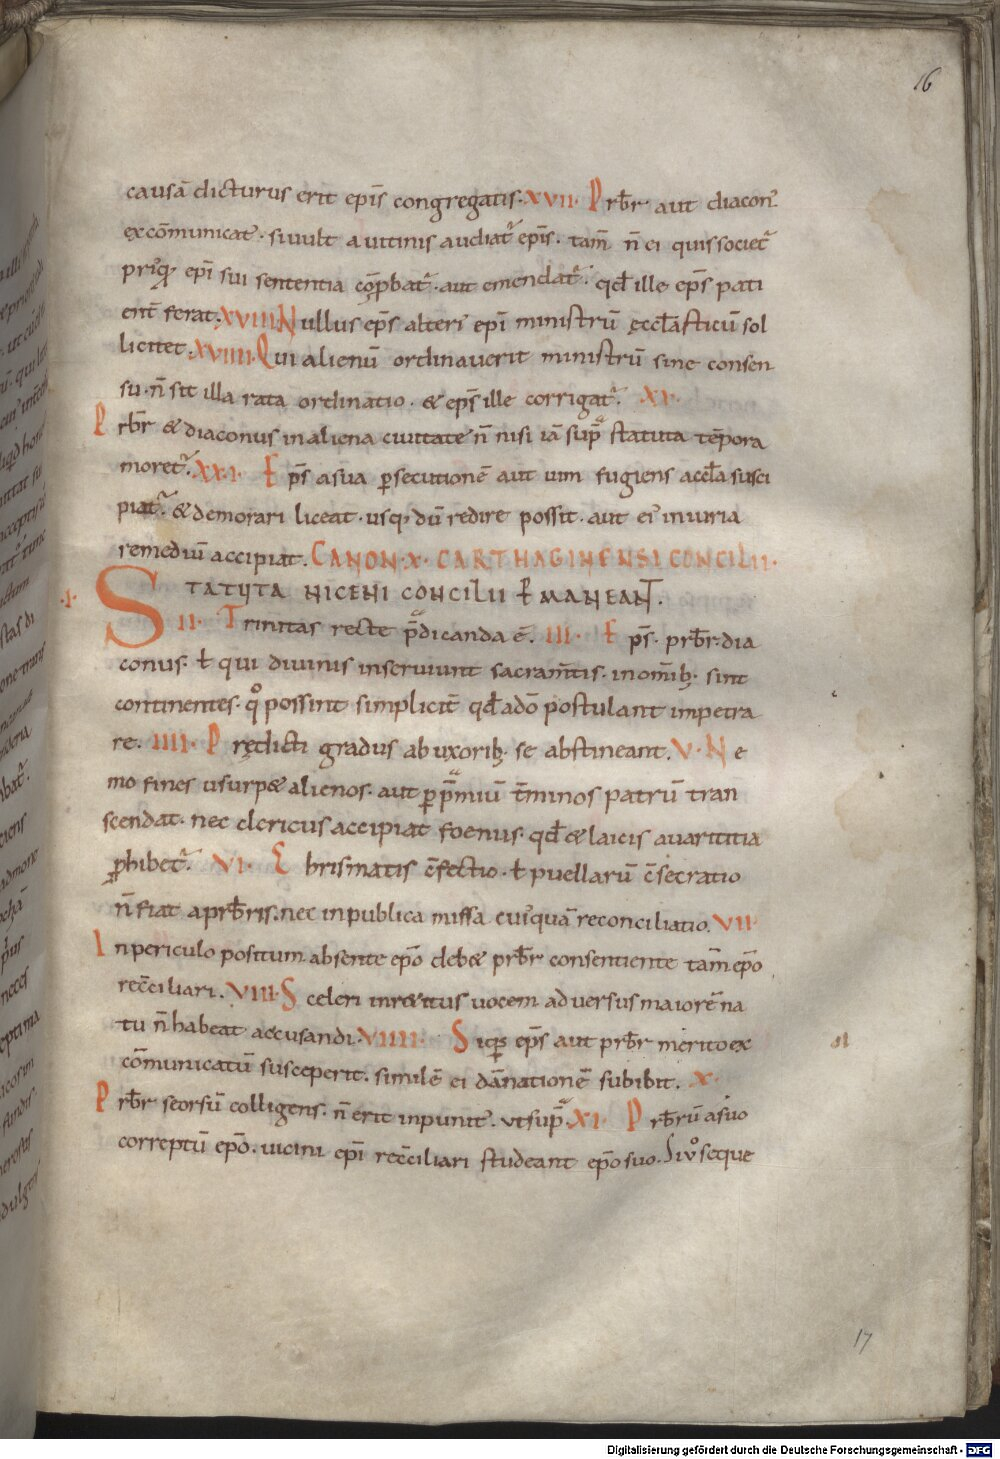 16
causā dicturus erit epīs congregatis. XVII. Prƀr aut diacon᾽
excōmunicat᾽. si uult a uitinis audiat᾽ epīs. tam̄ n̄ ei quis societ᾽
pri᾽q; epī sui sententia cōprobat᾽. aut emendat᾽. qd̄ ille ep̄s pati
ent̄ ferat. XVIII. Nullus ep̄s alteri᾽ epī ministrū ęccl̄asticū sol
licitet. XVIIII. Qui alienū ordinauerit ministrū sine consen
su. n̄ sit illa rata ordinatio. & ep̄s ille corrigat᾽. XX.
Prƀr & diaconus in aliena ciuitate n̄ nisi iā sup᾽ statuta tēpora
moret᾽. XXI. Ep̄s a sua ꝑsecutionē aut uim fugiens a eccl̄a susci
piat᾽. & demorari liceat. usq; dū redire possit. aut ei᾽ iniuria
remediū accipiat. CANON. X. CARTHAGINENSI CONCILII.
.I. STATUTA NICENI CONCILII ꝐMANEANT.
II. Trinitas recte p̄dicanda ē. III. Ep̄s. prƀr. dia
conus. ł qui diuinis inseruiunt sacram̄tis. in om̄ib; sint
continentes. qo possint simplicit̄ qd̄ a dō postulant impetra
re. IIII. Prędicti gradus ab uxorib; se abstineant. V. Ne
mo fines usurp& alienos. aut ꝑ p̄miū t̄minos patrū tran
scendat. nec clericus accipiat foenus. qd̄ & laicis auarititia
ꝓhibet᾽. VI. Chrismatis c̄fectio. ł puellarū c̄secratio
n̄ fiat a prƀris. nec in publica missa cui᾽quā reconciliatio. VII.
In periculo positum absente ep̄o deb& prƀr consentiente tam̄ ep̄o
rec̄ciliari. VIII. Sceleri inretitus uocem aduersus maiorē na
tu n̄ habeat accusandi. VIIII. Siq̇s ep̄s aut prƀr merito ex
cōmunicatū susceperit. similē ei dānationē subibit. X.
Prƀr seorsū colligens. n̄ erit inpunit᾽. ut sup᾽. XI. Prƀrū a suo
correptū ep̄o. uicini epī rec̄ciliari studeant ep̄o suo. Siu̇ seque
17
Digitalisierung gefördert durch die Deutsche Forschungsgemeinschaft - DFG